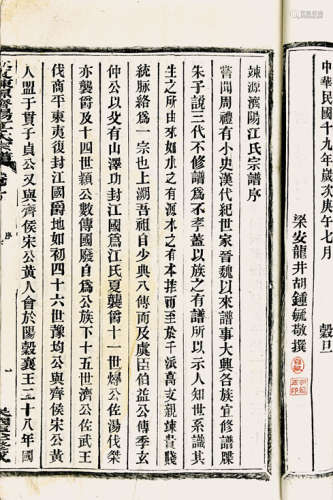 中華民國十九年歲次庚午七月　穀旦
梁安龍井胡鍾毓敬撰
竦源濟陽江氏宗譜序
嘗閱周禮有小史漢代紀世家晉魏以來譜事大興各族宜修譜牒
朱子說三代不修譜為不孝蓋以族之有譜所以示人知世系識其
生之所由來如水之有源木之有本推而至於千派萬支親疎貴賤
統脈絡為一宗也上溯吾祖自少典八傳而及虞臣伯益公傳季玄
仲公以爻有山澤功封江國為江氏夏襲爵十一世爗公佐湯伐桀
亦襲爵及十四世穎公數傳國廢自為公族下十五世濟公佐武王
伐商平東夷復封江國爵地如初四十六世豫均公與齊侯宋公黃
人盟于貫子貞公又與齊侯宋公黃人會於陽穀襄王二十八年國
序
一